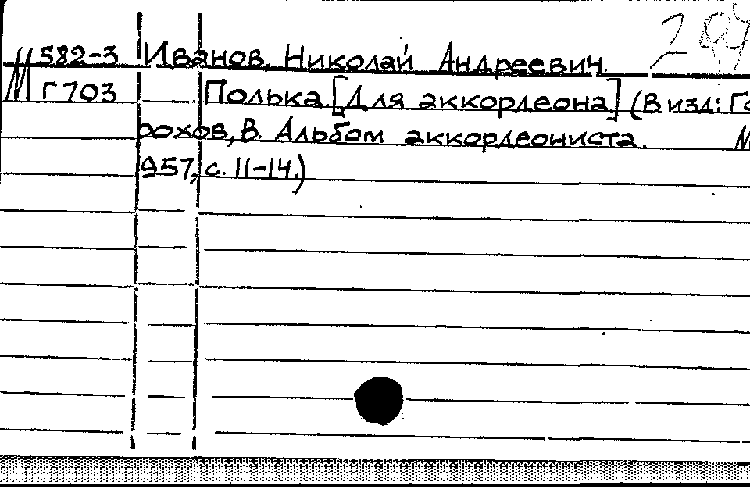 М 582-3 Иванов, Николай Андреевич.
Г703 Полька [Для аккордеона] (В изд: Го
рохов, В. Альбом аккордеониста. М
957, с. 11-14.)